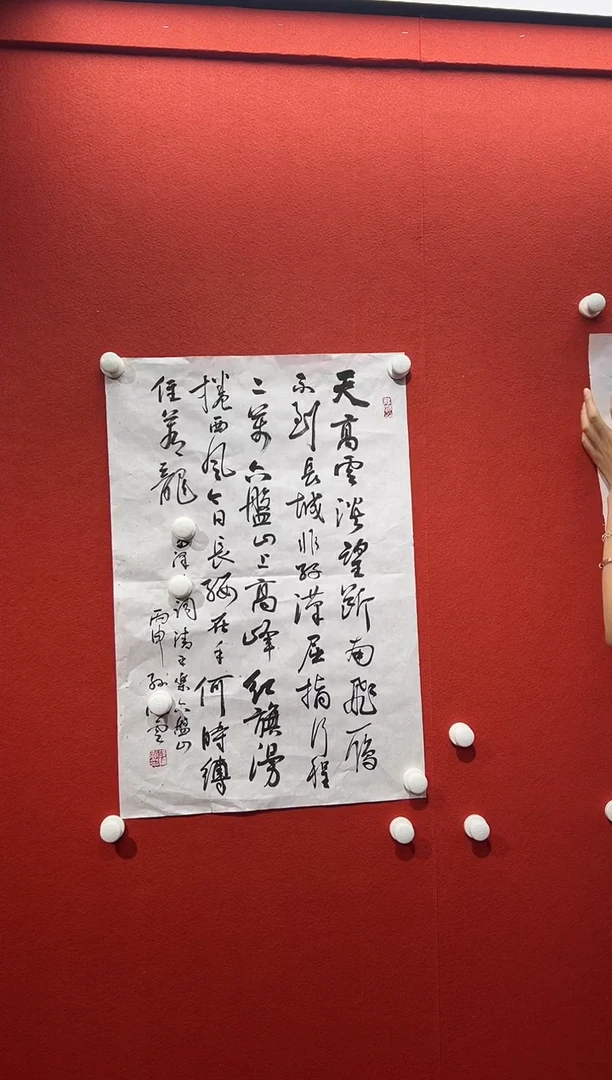 天高雲淡望斷南飛雁
不到長城非好漢屈指行程
二萬六盤山上高峰紅旗漫
捲西風今日長纓在手何時縛
住蒼龍
澤 詞清平樂六盤山
丙申 孫 雲